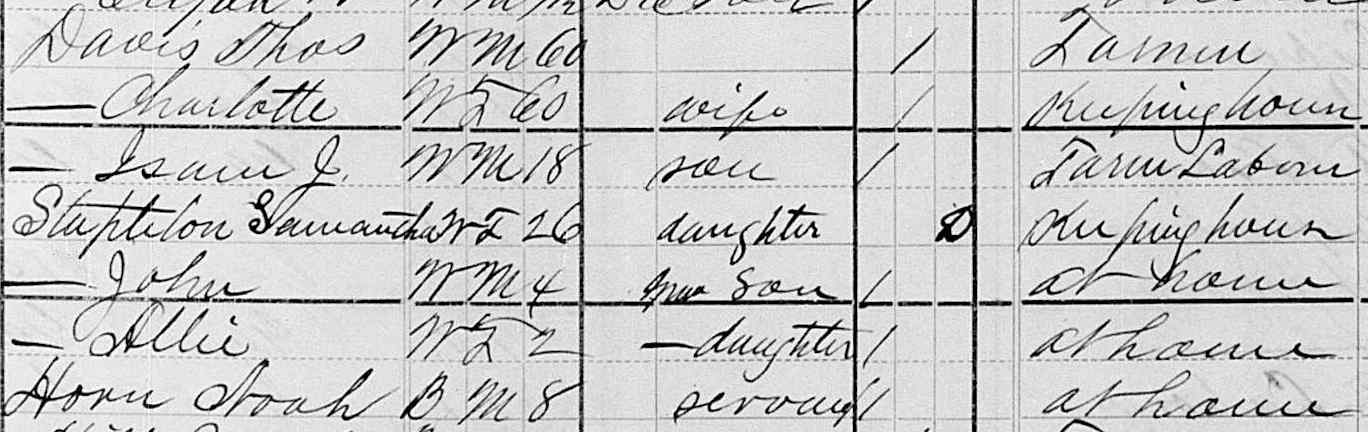 Davis Thos W M 60 / Farmer
— Charlotte W F 60 wife / Keeping house
— Isam J. W M 18 son / Farm Labor
Stapleton Samantha W F 26 daughter D Keeping house
— John W M 4 Son / at home
— Allie W F 2 — daughter / at home
Horn Noah B M 8 servant / at home